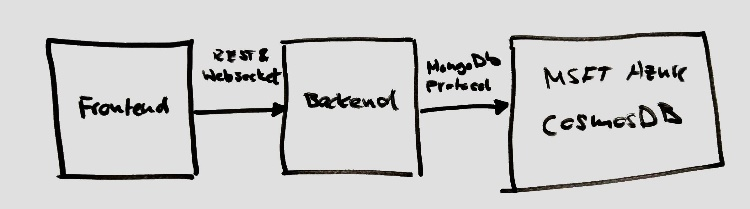 Frontend
REST &
Websocket
Backend
MongoDb
Protocol
MSFT Azure
CosmosDB